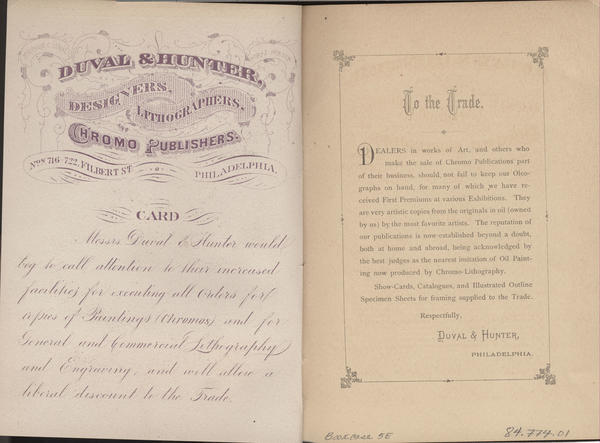 DUVAL & HUNTER,
DESIGNERS,
LITHOGRAPHERS,
AND
CHROMO PUBLISHERS.
Nos. 716-722, FILBERT ST.
PHILADELPHIA.
CARD
Messrs. Duval & Hunter would
beg to call attention to their increased
facilities for executing all Orders for
copies of Paintings (Chromos) and for
General and Commercial Lithography
and Engraving, and will allow a
liberal discount to the Trade.
To the Trade.
DEALERS in works of Art, and others who
make the sale of Chromo Publications part
of their business, should not fail to keep our Oleo-
graphs on hand, for many of which we have re-
ceived First Premiums at various Exhibitions. They
are very artistic copies from the originals in oil (owned
by us) by the most favorite artists. The reputation of
our publications is now established beyond a doubt,
both at home and abroad, being acknowledged by
the best judges as the nearest imitation of Oil Paint-
ing now produced by Chromo-Lithography.
Show-Cards, Catalogues, and Illustrated Outline
Specimen Sheets for framing supplied to the Trade.
Respectfully,
DUVAL & HUNTER,
PHILADELPHIA.
Bookcase 5E
84.774.01